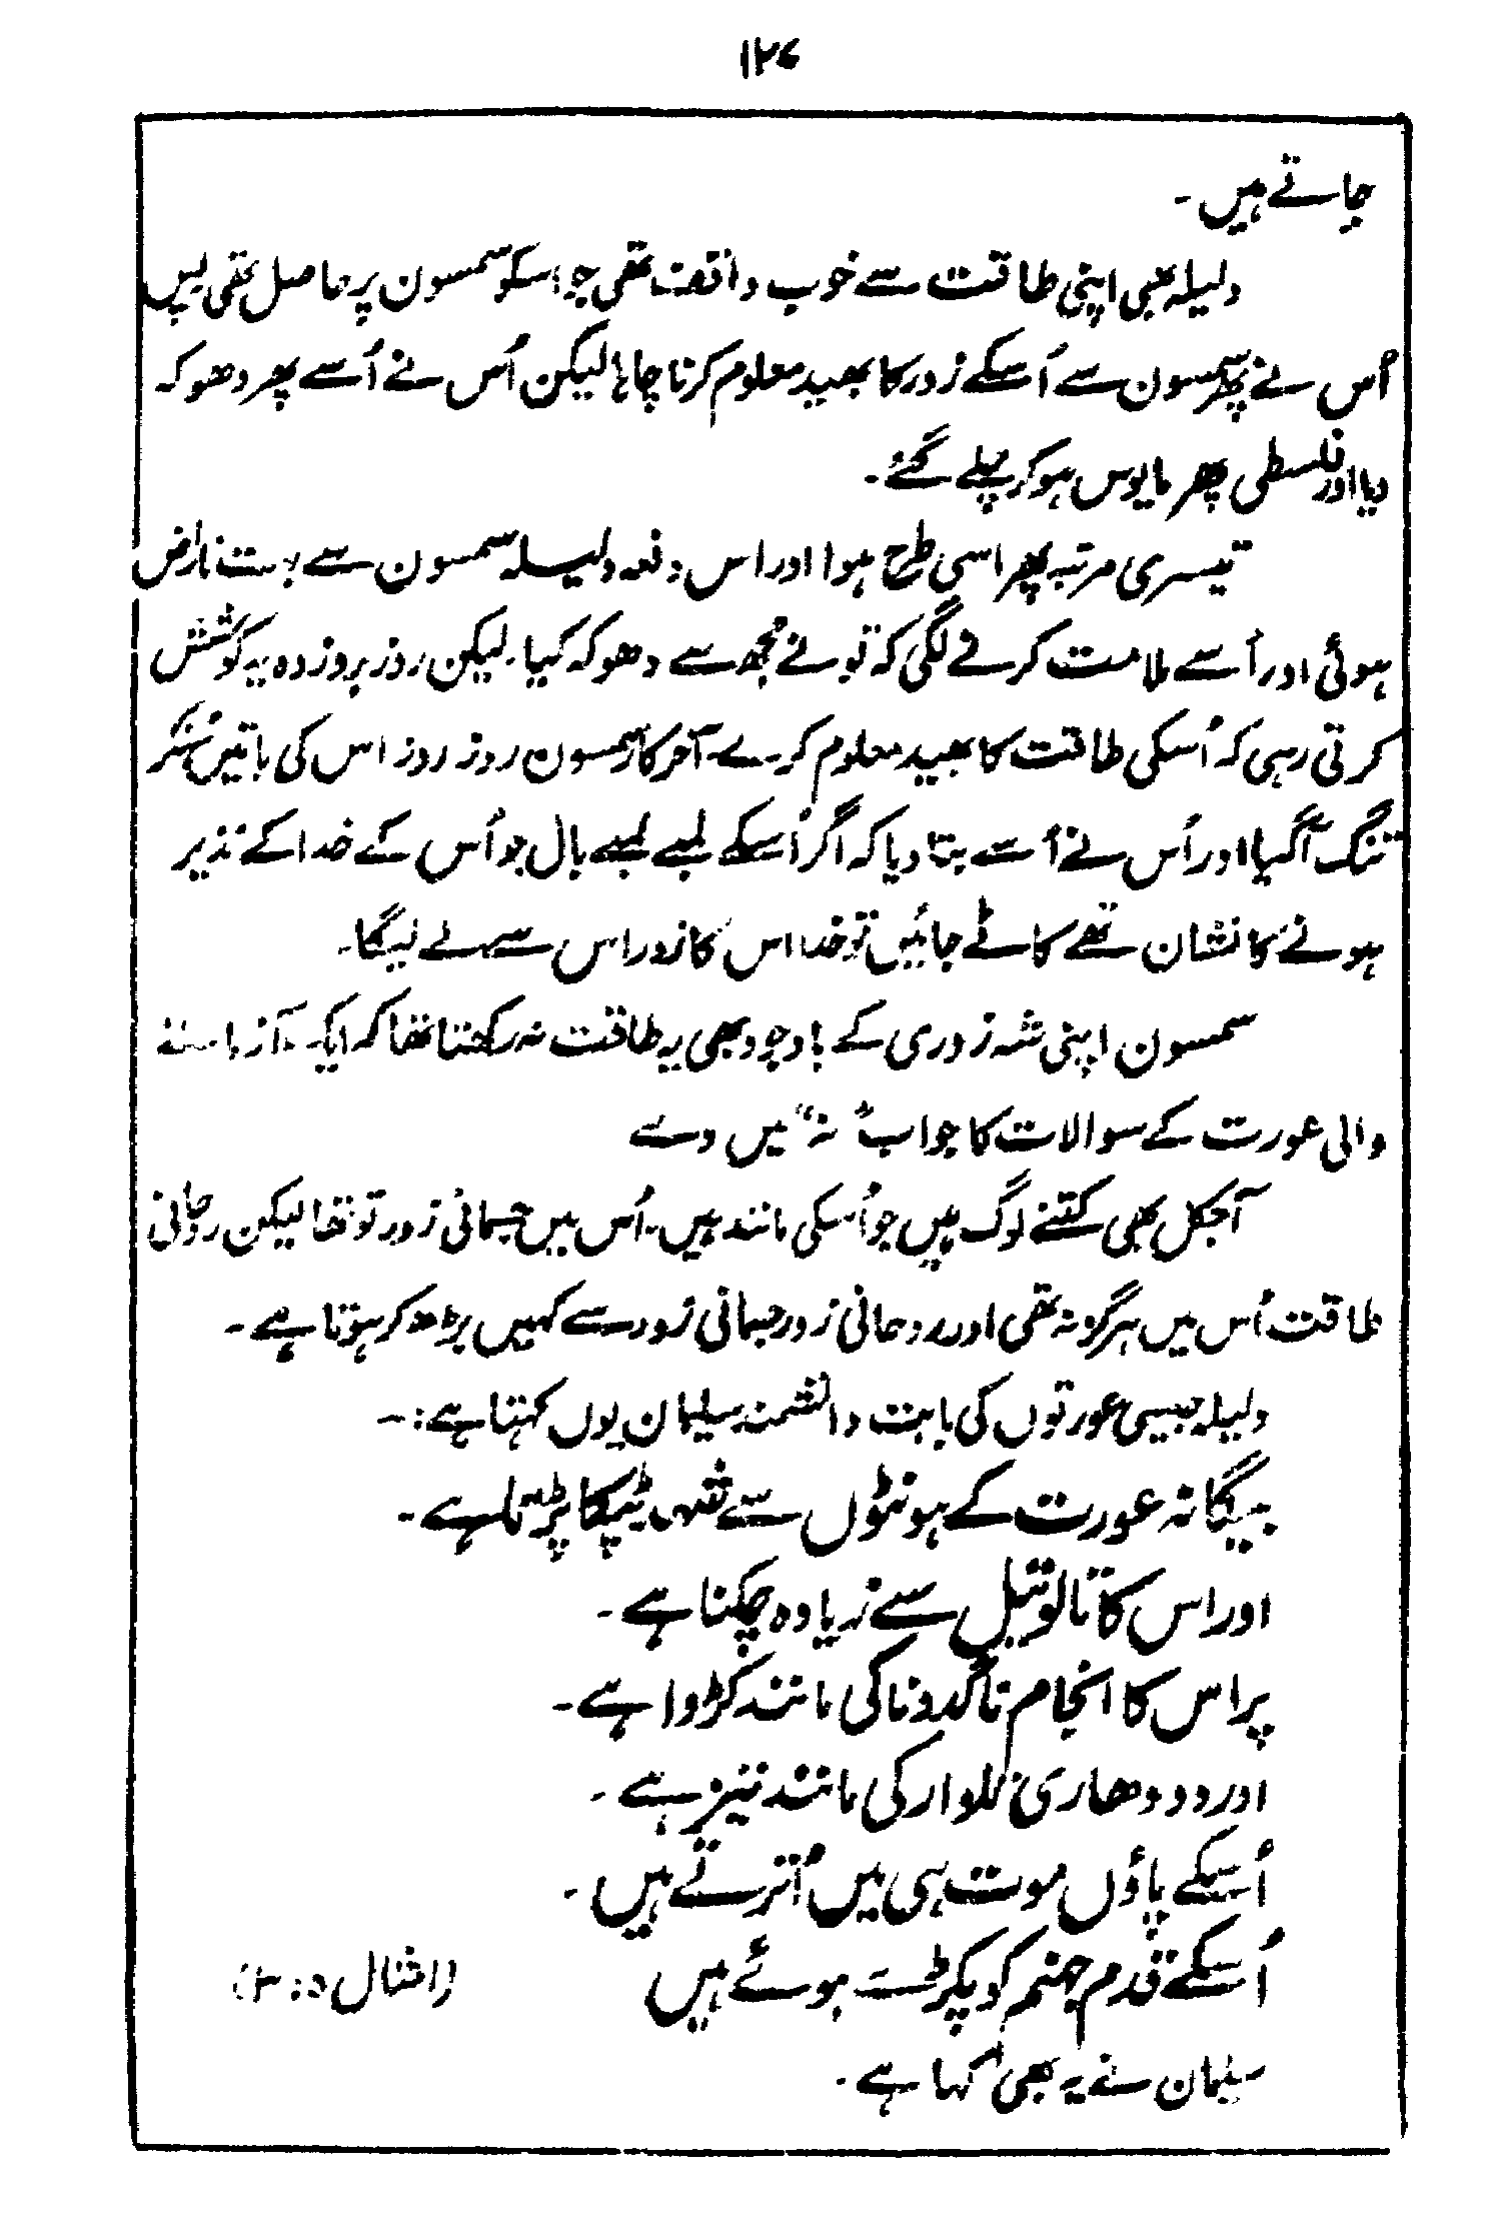 ۱۲۷
جاتے ہیں ۔
دلیلہ بھی اپنی طاقت سے خوب واقف تھی جو اسکو سمسون پر حاصل تھی پس
اُس نے پھر سمسون سے اُسکے زور کا بھید معلوم کرنا چاہا لیکن اُس نے اُسے پھر دھوکہ
دیا اور فلسطی پھر مایوس ہو کر چلے گئے ۔
تیسری مرتبہ پھر اسی طرح ہوا اور اس دفعہ دلیلہ سمسون سے بہت ناراض
ہوئی اور اُسے ملامت کرنے لگی کہ تو نے مُجھ سے دھوکہ کیا ۔ لیکن روز بروز وہ یہ کوشش
کرتی رہی کہ اُسکی طاقت کا بھید معلوم کرے ۔ آخر کار سمسون روز روز اس کی باتیں سُنکر
تنگ آگیا اور اُس نے اُسے بتا دیا کہ اگر اُسکے لمبے لمبے بال جو اُس کے خدا کے نذیر
ہونے کا نشان تھے کاٹے جائیں تو خدا اس کا زور اس سے لے لیگا ۔
سمسون اپنی شہ زوری کے باوجود بھی یہ طاقت نہ رکھتا تھا کہ ایک آزمانے
والی عورت کے سوالات کا جواب ”نہ“ میں دے
آجکل بھی کتنے لوگ ہیں جو اُسکی مانند ہیں ۔ اُس میں جسمانی زور تو تھا لیکن روحانی
طاقت اُس میں ہرگز نہ تھی اور روحانی زور جسمانی زور سے کہیں بڑھ کر ہوتا ہے ۔
دلیلہ جیسی عورتوں کی بابت دانشمند سلیمان یوں کہتا ہے :۔
بیگانہ عورت کے ہونٹوں سے شہد ٹپکا پڑتا ہے ۔
اور اس کا تالو تیل سے زیادہ چکنا ہے ۔
پر اس کا انجام ناگدونا کی مانند کڑوا ہے ۔
اور دو دھاری تلوار کی مانند تیز ہے ۔
اُسکے پاؤں موت ہی میں اُترتے ہیں ۔
اُسکے قدم جہنم کو پکڑتے ہوئے ہیں (امثال ۵ : ۳)
سلیمان نے یہ بھی کہا ہے ۔